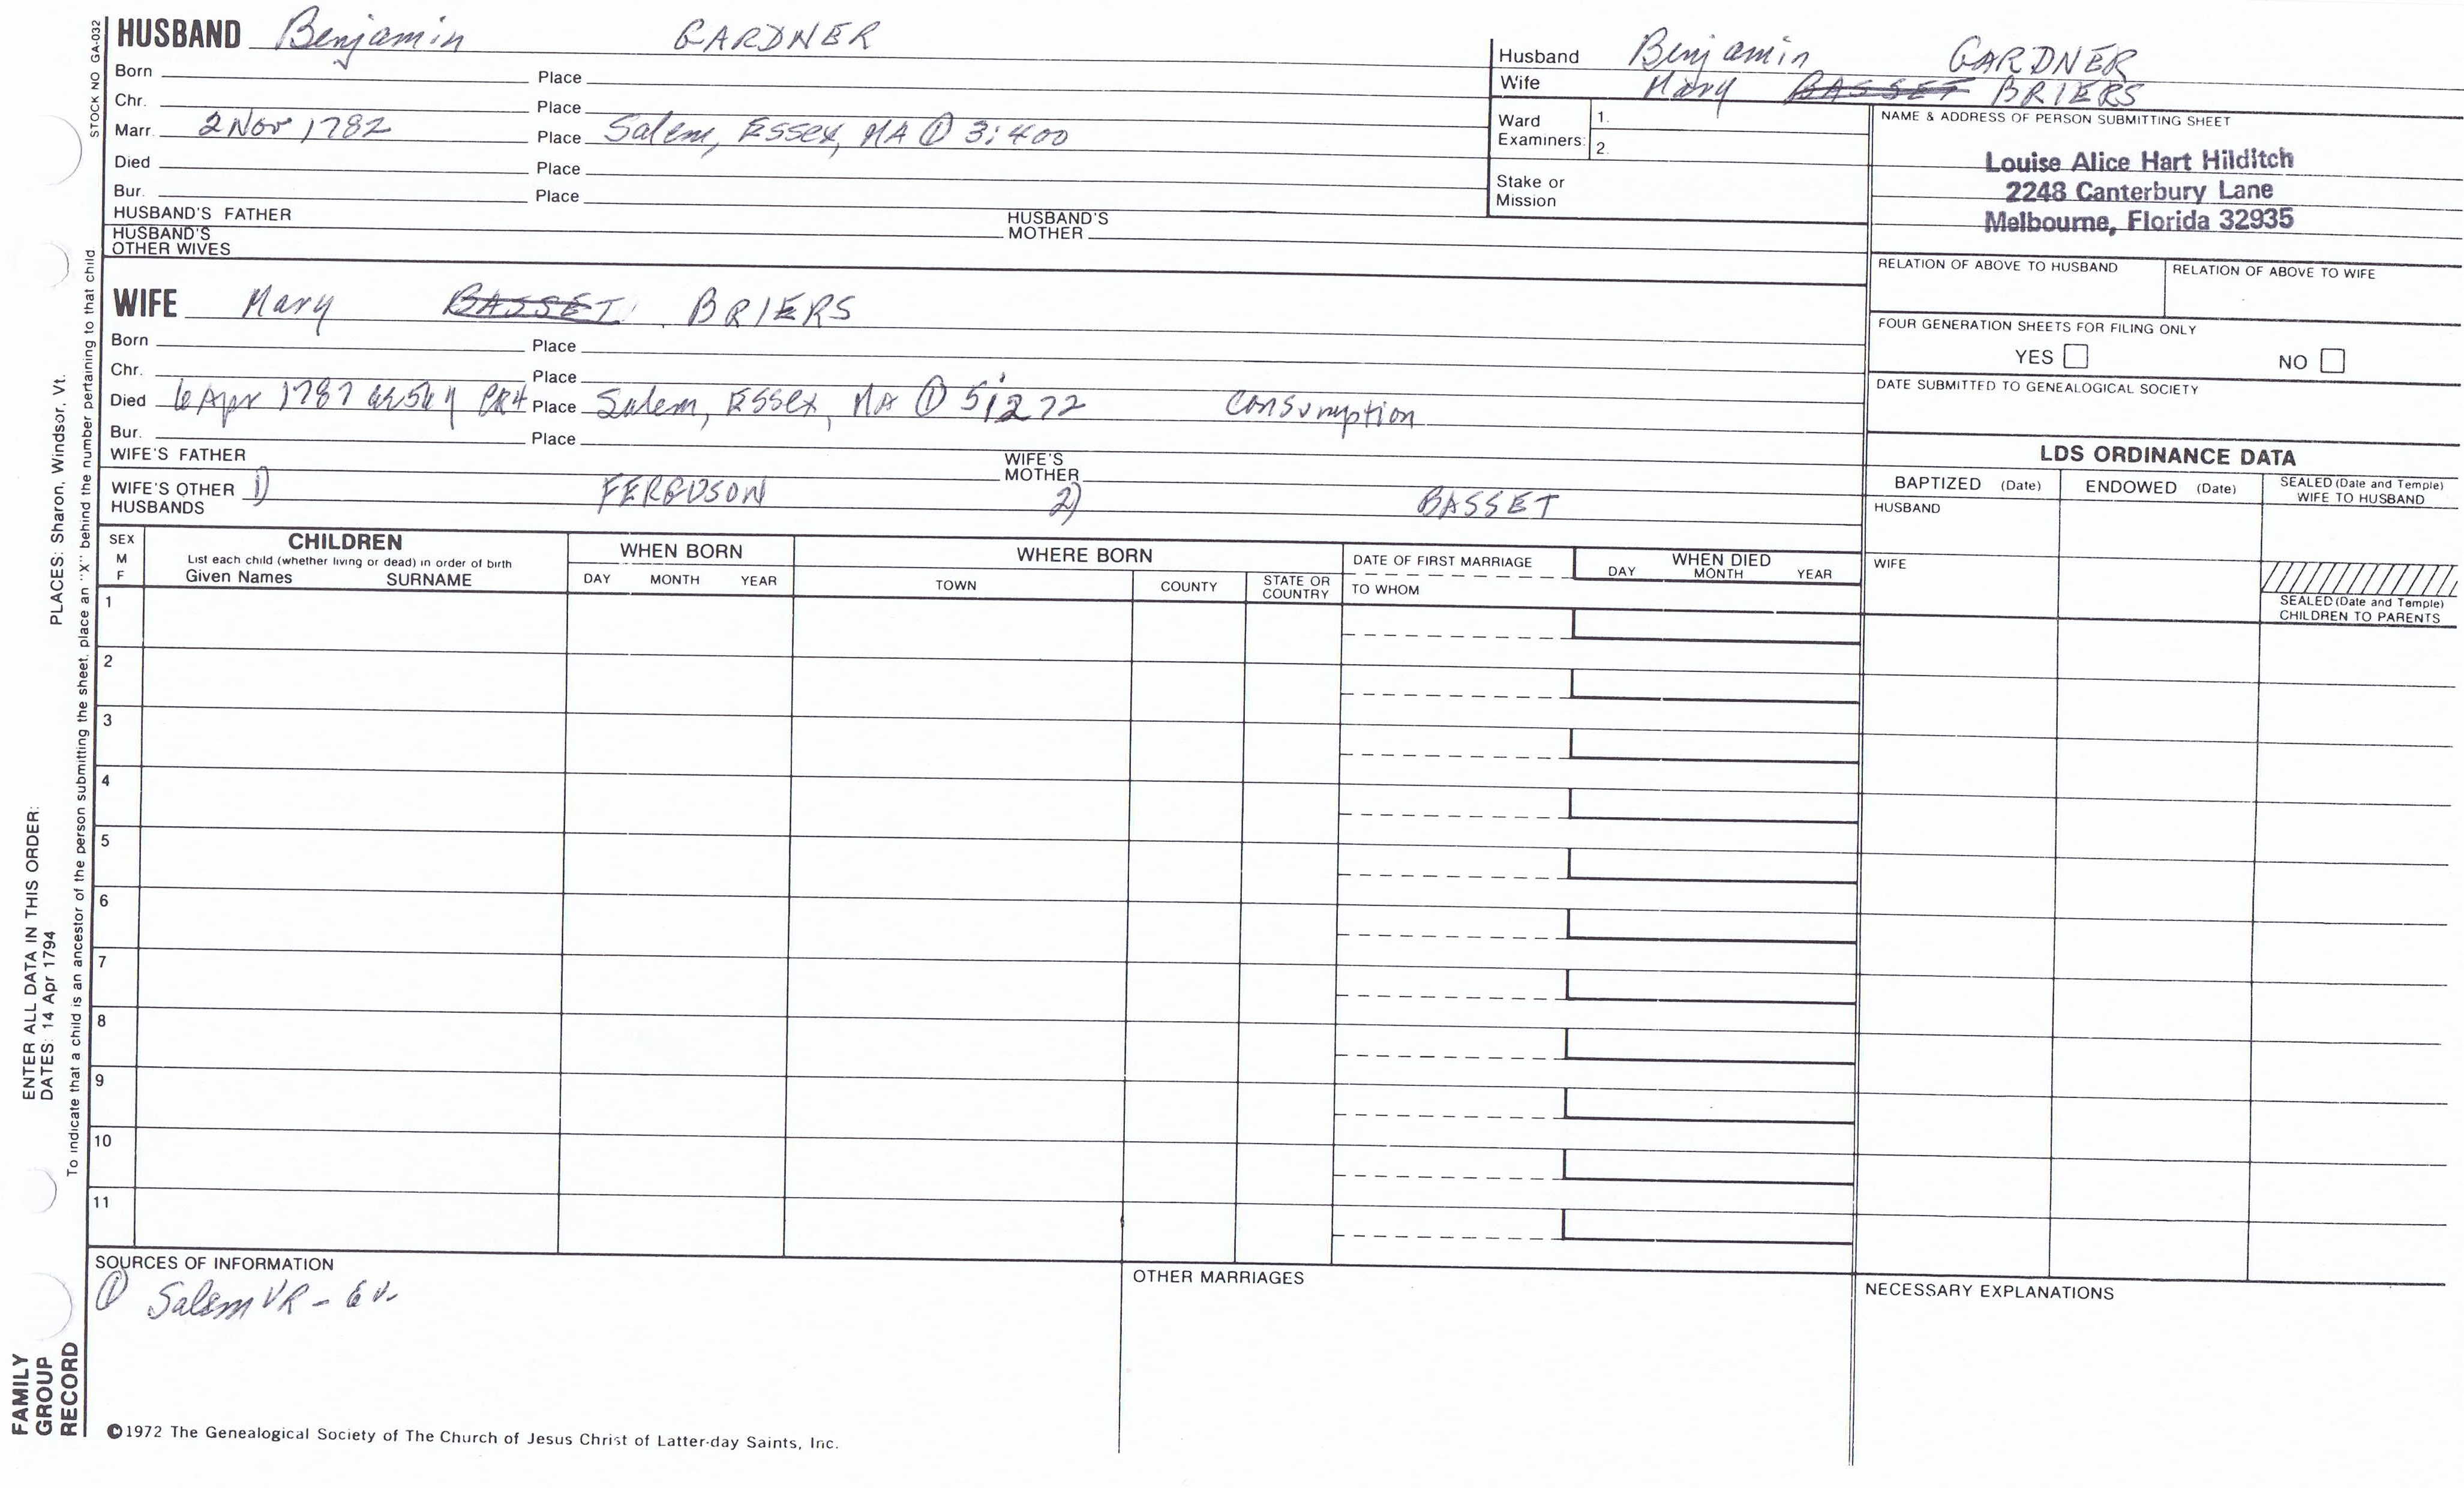 STOCK NO GA-032
HUSBAND Benjamin GARDNER
Born Place
Chr. Place
Marr. 2 Nov 1782 Place Salem, Essex, MA ① 3:400
Died Place
Bur. Place
HUSBAND'S FATHER HUSBAND'S MOTHER
HUSBAND'S OTHER WIVES
WIFE Mary BASSET BRIERS
Born Place
Chr. Place
Died 6 Apr 1787 PR4 Place Salem, Essex, MA ① 5:272 Consumption
Bur. Place
WIFE'S FATHER WIFE'S MOTHER
WIFE'S OTHER HUSBANDS 1) FERGUSON 2) BASSET
Husband Benjamin GARDNER
Wife Mary BASSET BRIERS
Ward Examiners: 1.
2.
Stake or Mission
NAME & ADDRESS OF PERSON SUBMITTING SHEET
Louise Alice Hart Hilditch
2248 Canterbury Lane
Melbourne, Florida 32935
RELATION OF ABOVE TO HUSBAND RELATION OF ABOVE TO WIFE
FOUR GENERATION SHEETS FOR FILING ONLY
YES NO
DATE SUBMITTED TO GENEALOGICAL SOCIETY
LDS ORDINANCE DATA
BAPTIZED (Date) ENDOWED (Date) SEALED (Date and Temple) WIFE TO HUSBAND
HUSBAND
WIFE
SEALED (Date and Temple)
CHILDREN TO PARENTS
SEX M F
CHILDREN
List each child (whether living or dead) in order of birth
Given Names SURNAME
WHEN BORN
DAY MONTH YEAR
WHERE BORN
TOWN COUNTY STATE OR COUNTRY
DATE OF FIRST MARRIAGE
TO WHOM
WHEN DIED
DAY MONTH YEAR
1
2
3
4
5
6
7
8
9
10
11
SOURCES OF INFORMATION
① Salem VR - 6 v.
OTHER MARRIAGES
NECESSARY EXPLANATIONS
©1972 The Genealogical Society of The Church of Jesus Christ of Latter-day Saints, Inc.
FAMILY
GROUP
RECORD
ENTER ALL DATA IN THIS ORDER:
DATES: 14 Apr 1794
PLACES: Sharon, Windsor, Vt.
To indicate that a child is an ancestor of the person submitting the sheet, place an "X" behind the number pertaining to that child